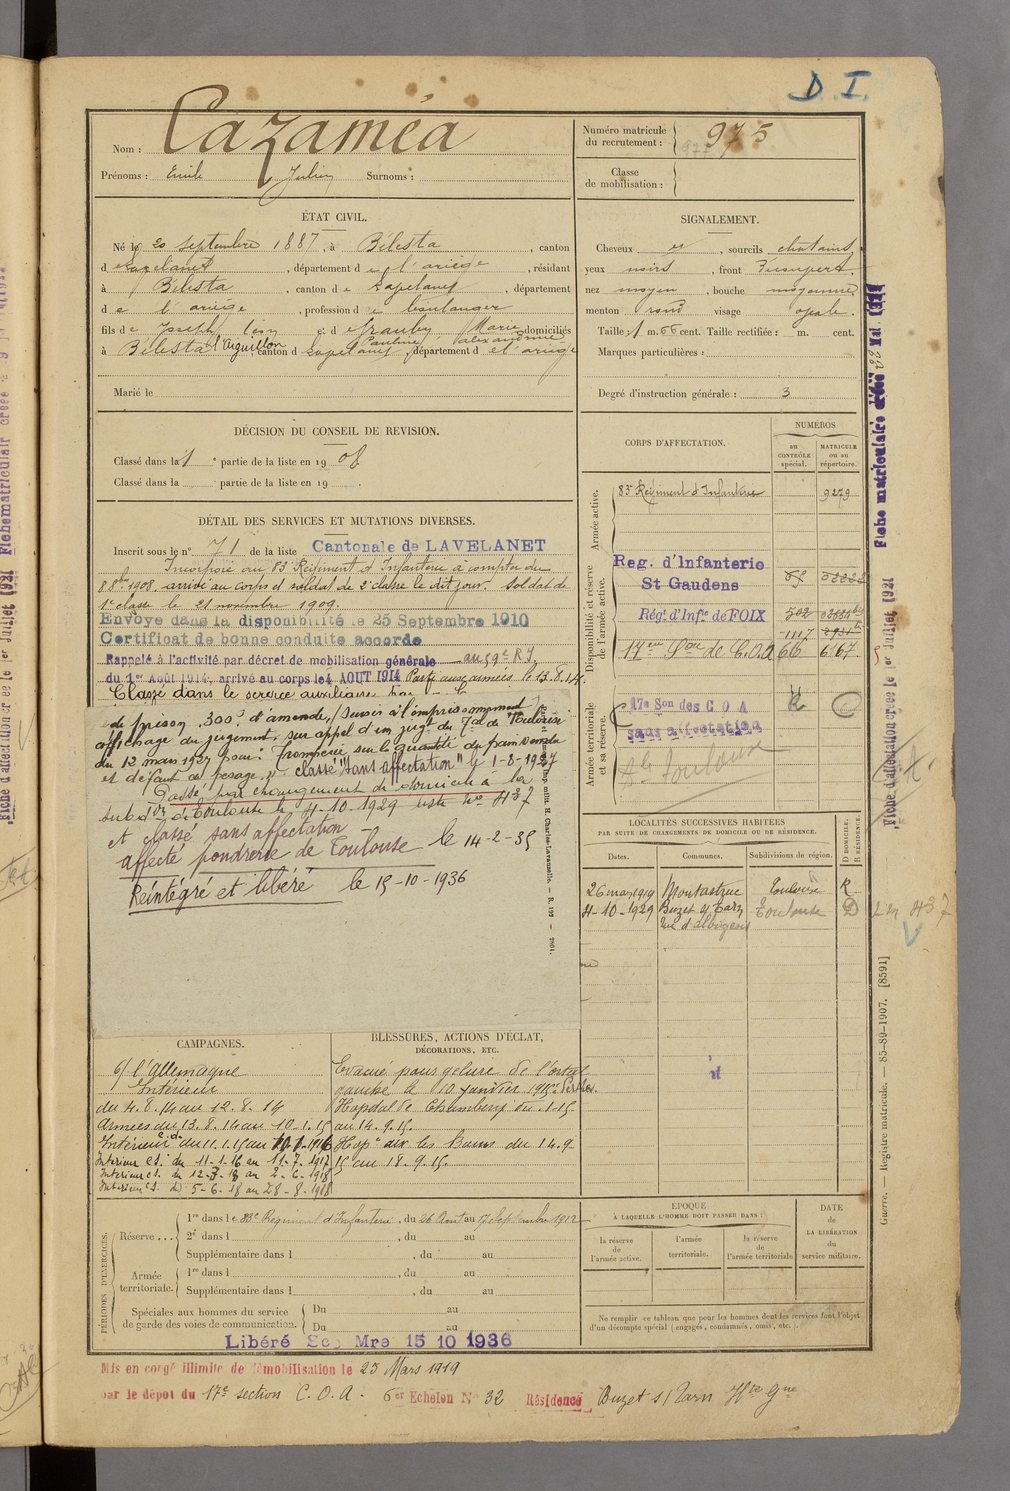 D. I.
Nom : Cazaméa
Prénoms : Emile Julien Surnoms :
Numéro matricule du recrutement : 975
Classe de mobilisation :
ÉTAT CIVIL.
Né le 20 septembre 1887, à Bélesta, canton
de Lavelanet, département de l'ariège, résidant
à Bélesta, canton de Lavelanet, département
de l'ariège, profession de boulanger
fils de Joseph Léon et de Marie domiciliés
Pauline alexandrine
à Bélesta l'Aiguillon canton de Lavelanet, département de l'ariège
Marié le
SIGNALEMENT.
Cheveux et, sourcils chatains,
yeux noirs, front
nez moyen, bouche moyenne,
menton rond visage ovale.
Taille : 1 m. 66 cent. Taille rectifiée : m. cent.
Marques particulières :
Degré d'instruction générale : 3
DÉCISION DU CONSEIL DE REVISION.
Classé dans la 1e partie de la liste en 1908
Classé dans la partie de la liste en 19 .
DÉTAIL DES SERVICES ET MUTATIONS DIVERSES.
Inscrit sous le n° 71 de la liste Cantonale de LAVELANET
Incorporé au 83e Régiment d'Infanterie à compter du
8 8bre 1908, arrivé au corps et soldat de 2e classe le dit jour. Soldat de
1e classe le 21 novembre 1909.
Envoyé dans la disponibilité le 25 Septembre 1910
Certificat de bonne conduite accordé
Rappelé à l'activité par décret de mobilisation générale au 59e R.I.
du 1er Août 1914, arrivé au corps le 4 AOUT 1914 Parti aux armées le 13.8.14.
Classé dans le service auxiliaire
de prison, 300f d'amende, (sursis à l'emprisonnement
affichage du jugement, sur appel d'un jugt du Tal de Toulouse
du 12 mars 1927 pour : Tromperie sur la quantité du pain vendu
et défaut de pesage. classé "sans affectation" le 1-8-1927
Passé par changement de domicile à la
subdon de Toulouse le 4-10-1929 liste no 437
et classé sans affectation
affecté poudrerie de Toulouse le 14-2-35
Réintégré et libéré le 15-10-1936
CORPS D'AFFECTATION.
NUMÉROS
au CONTRÔLE spécial.
MATRICULE ou au répertoire.
Armée active.
83e Régiment d'Infanterie 9279
Disponibilité et réserve de l'armée active.
Reg. d'Infanterie
St Gaudens
Rég. d'Infie de FOIX 502
1117
17em Son de C.O.A 66 6167
Armée territoriale et sa réserve.
17e Son des C O A
sans affectation
Toulouse
LOCALITÉS SUCCESSIVES HABITÉES
PAR SUITE DE CHANGEMENTS DE DOMICILE OU DE RÉSIDENCE.
Dates. Communes. Subdivisions de région. D DOMICILE. R RÉSIDENCE.
26 mars 1919 Montastruc Toulouse R
4-10-1929 Buzet s/ Tarn Toulouse D
rue d'albigeois
437
CAMPAGNES.
c/ l'Allemagne
Intérieur
du 4.8.14 au 12.8.14
Armées du 13.8.14 au 10-1.15
Intérieur c.d. du 11.1.15 au 10.1-1916
Intérieur C.S. du 11-1-16 au 11-7.1917
Intérieur C.S. du 12-7-18 au 2-6-1918
Intérieur C.S. du 5-6.18 au 28-8-1918
BLESSURES, ACTIONS D'ÉCLAT,
DÉCORATIONS, ETC.
Evacué pour gelure de l'orteil
gauche le 10 janvier 1915
Hopital de Chambéry du .1-15
au 14.9.15.
Hopal aix les Bains du 14.9.
15 au 18.9.15.
PÉRIODES D'EXERCICES.
Réserve ...
1re dans le 83e Régiment d'Infanterie, du 26 Aout au 17 Septembre 1912
2e dans l , du au
Supplémentaire dans l , du au
Armée territoriale.
1re dans l , du au
Supplémentaire dans l , du au
Spéciales aux hommes du service de garde des voies de communication.
Du au
Du au
Libéré Ser Mre 15 10 1936
ÉPOQUE
À LAQUELLE L'HOMME DOIT PASSER DANS :
la réserve de l'armée active.
l'armée territoriale.
la réserve de l'armée territoriale
DATE
de
LA LIBÉRATION
du
service militaire.
Ne remplir ce tableau que pour les hommes dont les services font l'objet
d'un décompte spécial (engagés, condamnés, omis, etc.).
Mis en congé illimité de démobilisation le 23 Mars 1919
par le dépôt du 17e section C.O.A. 6er Echelon No 32 Résidence Buzet s/ Tarn Hte Gne
Guerre. — Registre matricule. — 85-89-1907. [8591]
Fiche d'affectation créée le 1er Juillet 1921
Fiche matriculaire créée